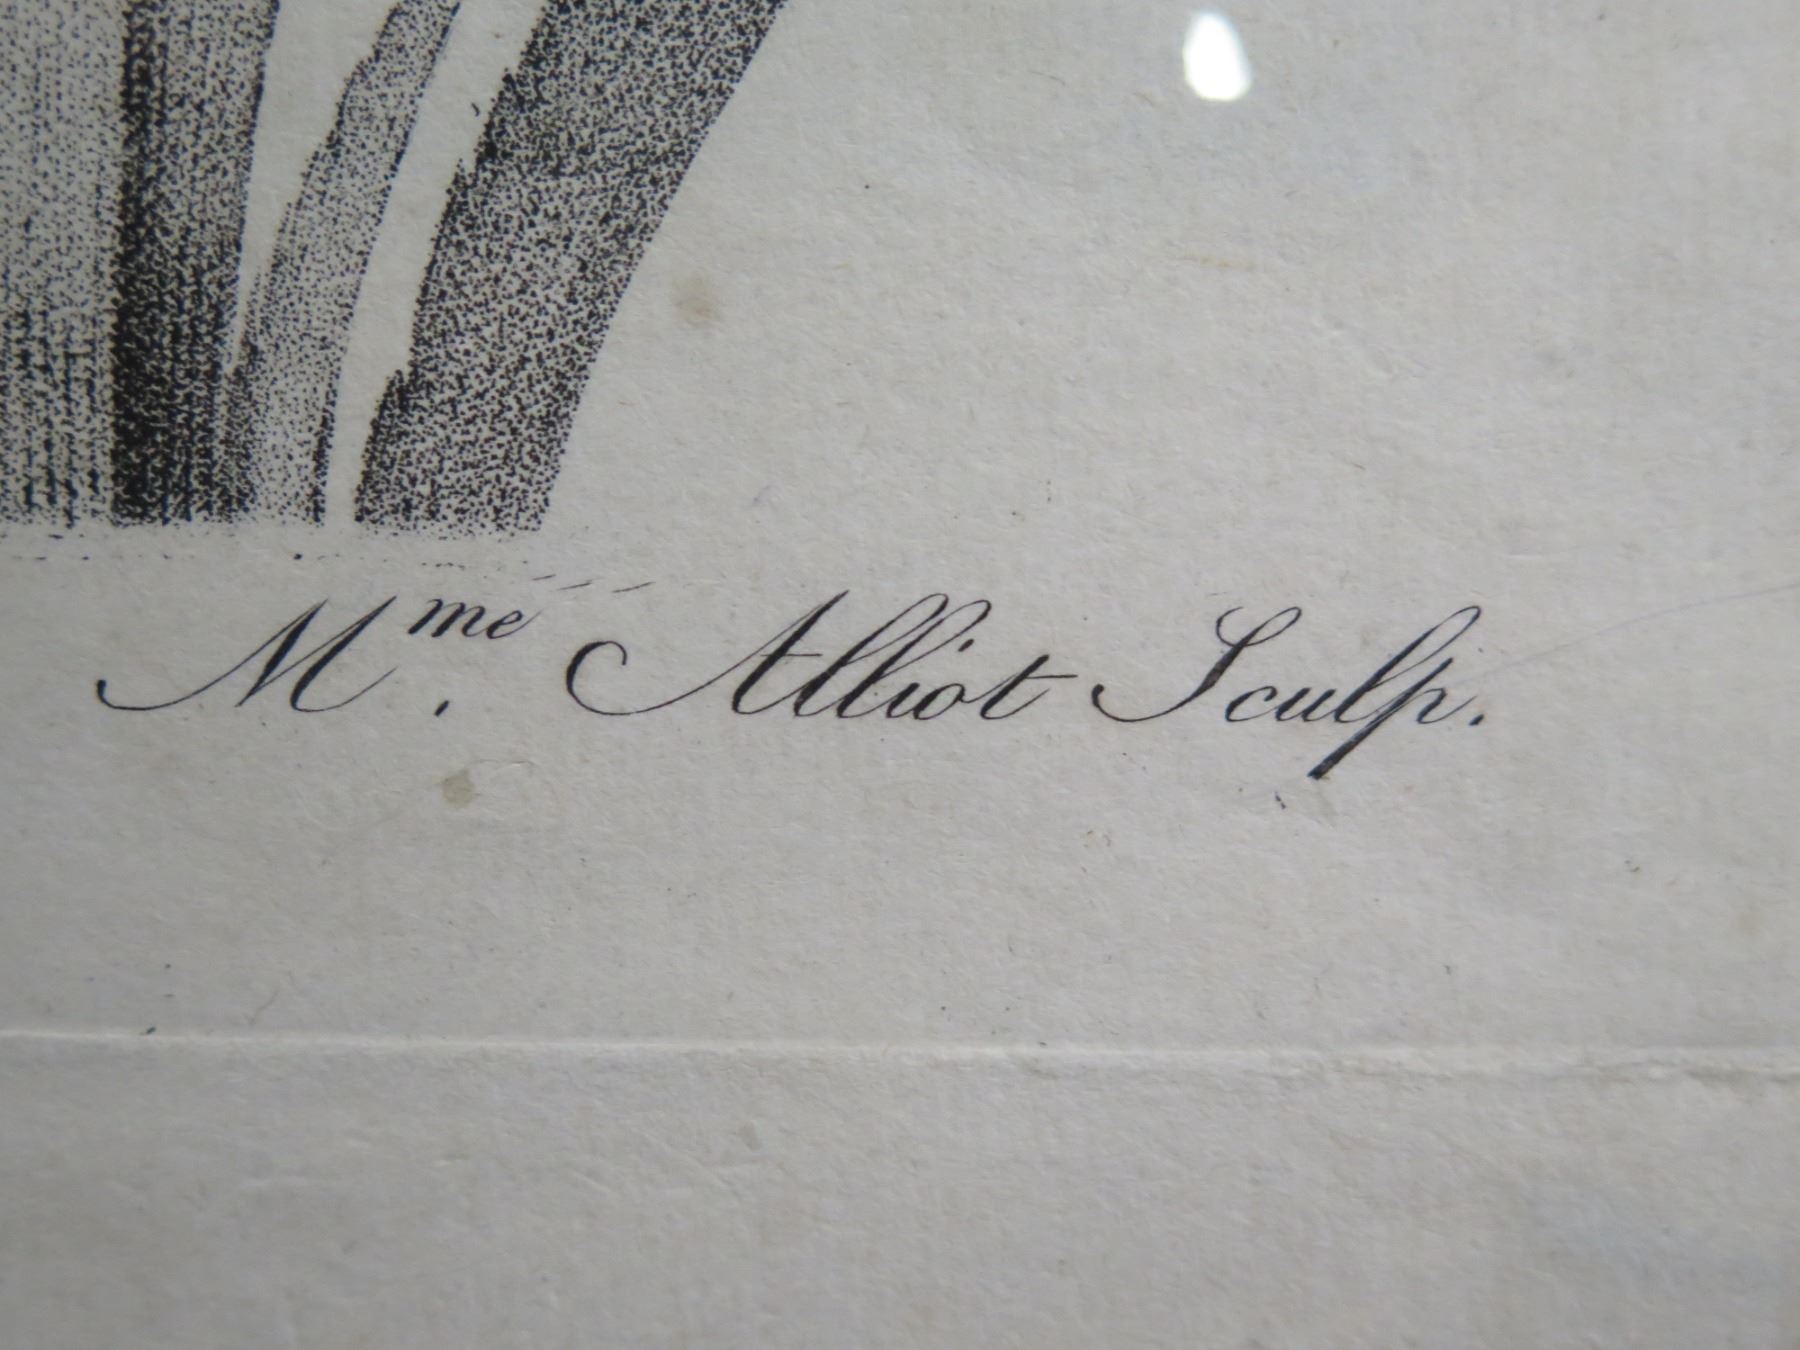 Mme. Alliot Sculp.